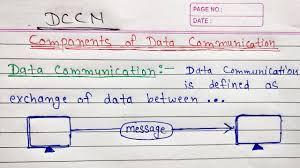 DCCN
PAGE NO.:
DATE:
Components of Data Communication
Data Communication:- Data Communication
is defined as
exchange of data between ...
message